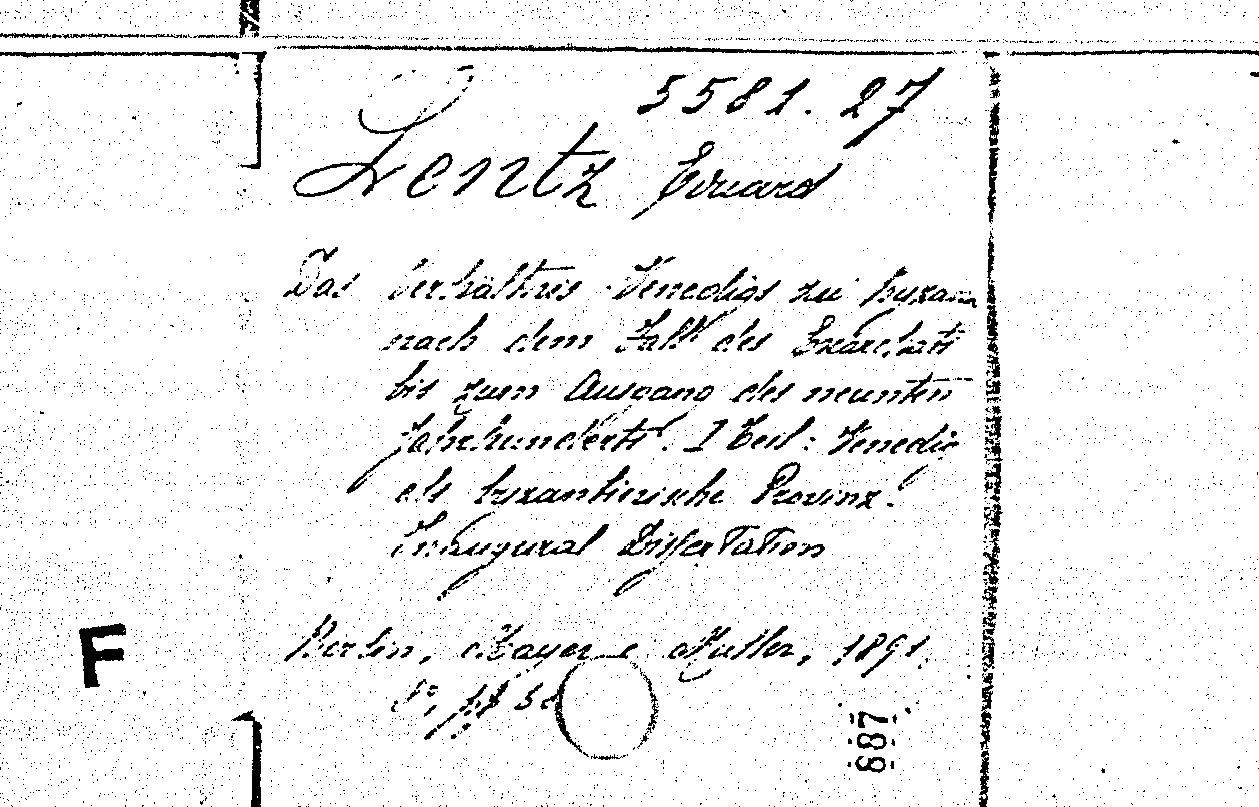 5581.27
Lentz Eduard
Das Verhältnis Venedigs zu Byzanz
nach dem Fall des Exarchats
bis zum Ausgang des neunten
Jahrhunderts. I Teil: Venedig
als byzantinische Provinz.
Inaugural Dissertation
Berlin, Mayer e Müller, 1891.
8°, pp
F
687